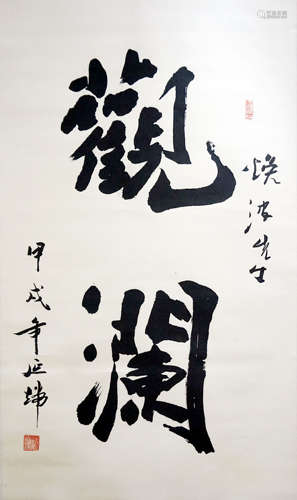 觀瀾
煥波先生
甲戌年延煒